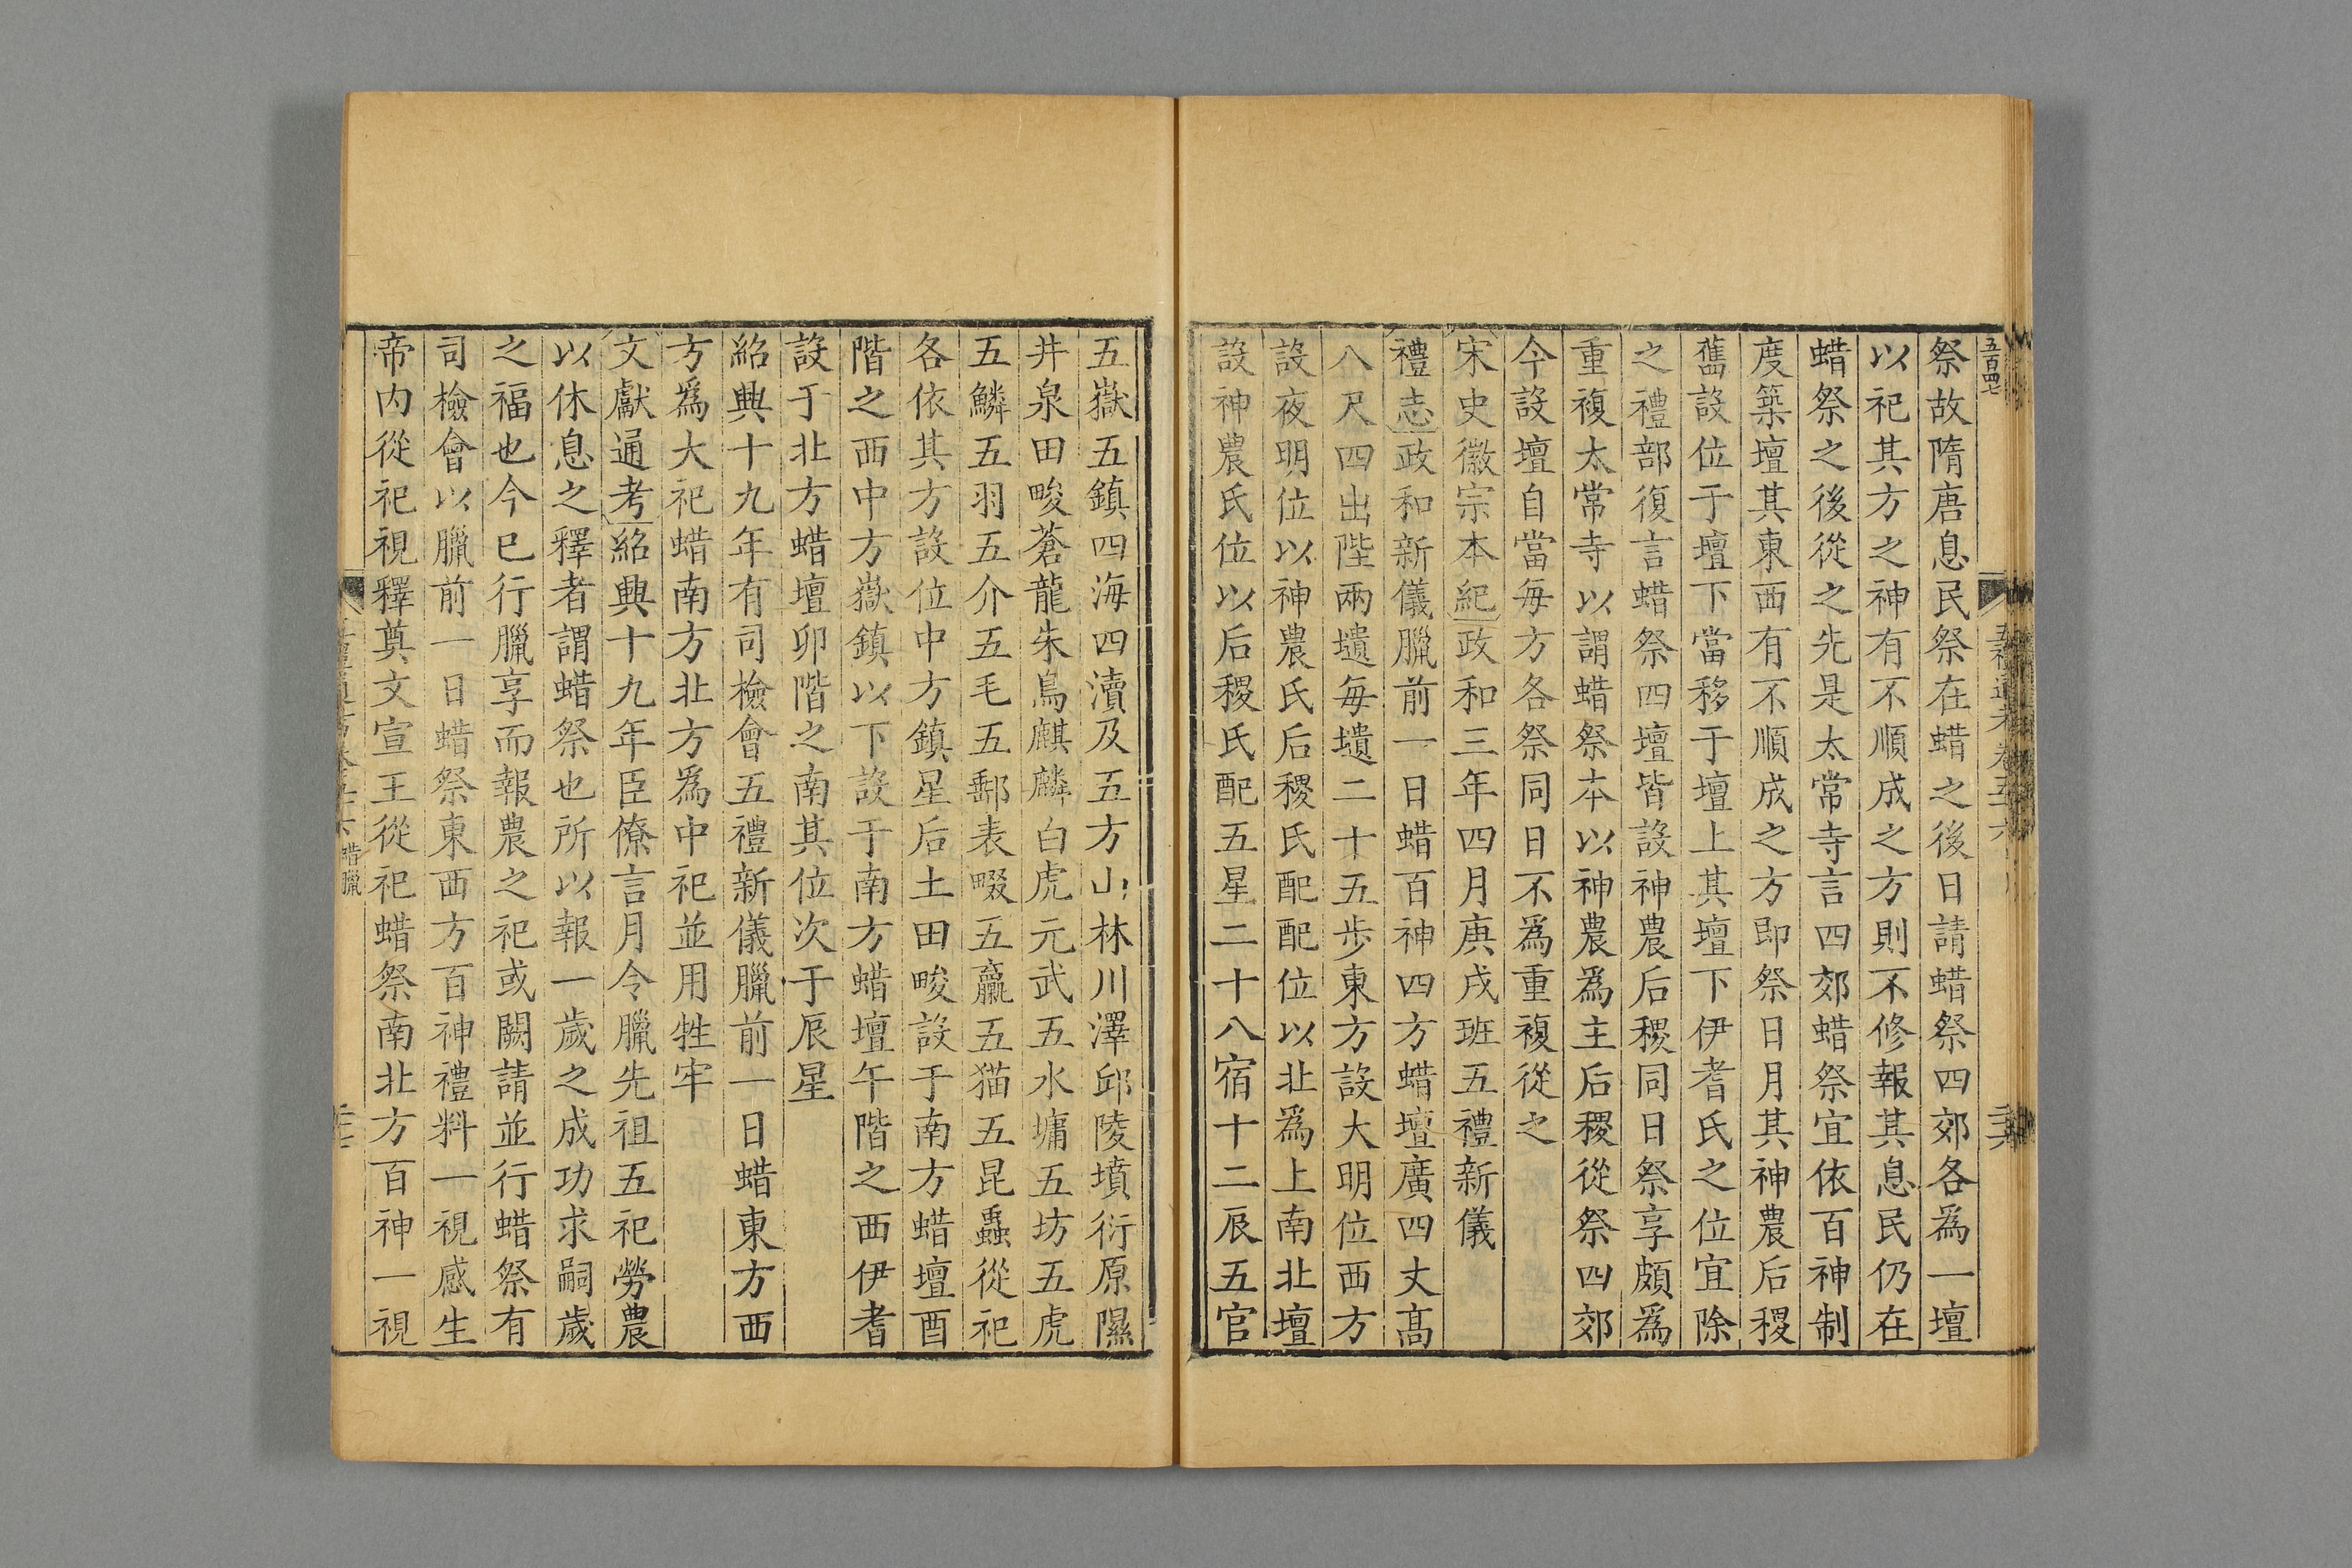 五百四七
祭故隋唐息民祭在蜡之後日請蜡祭四郊各為一壇
以祀其方之神有不順成之方則不修報其息民仍在
蜡祭之後從之先是太常寺言四郊蜡祭宜依百神制
度築壇其東西有不順成之方即祭日月其神農后稷
舊設位于壇下當移于壇上其壇下伊耆氏之位宜除
之禮部復言蜡祭四壇皆設神農后稷同日祭享頗為
重複太常寺以謂蜡祭本以神農為主后稷從祭四郊
今設壇自當每方各祭同日不為重複從之
宋史徽宗本紀政和三年四月庚戌班五禮新儀
禮志政和新儀臘前一日蜡百神四方蜡壇廣四丈高
八尺四出陛兩壝每壝二十五步東方設大明位西方
設夜明位以神農氏后稷氏配配位以北為上南北壇
設神農氏位以后稷氏配五星二十八宿十二辰五官
五嶽五鎮四海四瀆及五方山林川澤邱陵墳衍原隰
井泉田畯蒼龍朱鳥麒麟白虎元武五水墉五坊五虎
五鱗五羽五介五毛五郵表畷五蠃五猫五昆蟲從祀
各依其方設位中方鎮星后土田畯設于南方蜡壇酉
階之西中方嶽鎮以下設于南方蜡壇午階之西伊耆
設于北方蜡壇卯階之南其位次于辰星
紹興十九年有司檢會五禮新儀臘前一日蜡東方西
方為大祀蜡南方北方為中祀並用牲牢
文獻通考紹興十九年臣僚言月令臘先祖五祀勞農
以休息之釋者謂蜡祭也所以報一歲之成功求嗣歲
之福也今已行臘享而報農之祀或闕請並行蜡祭有
司檢會以臘前一日蜡祭東西方百神禮料一視感生
帝內從祀視釋奠文宣王從祀蜡祭南北方百神一視
蜡臘